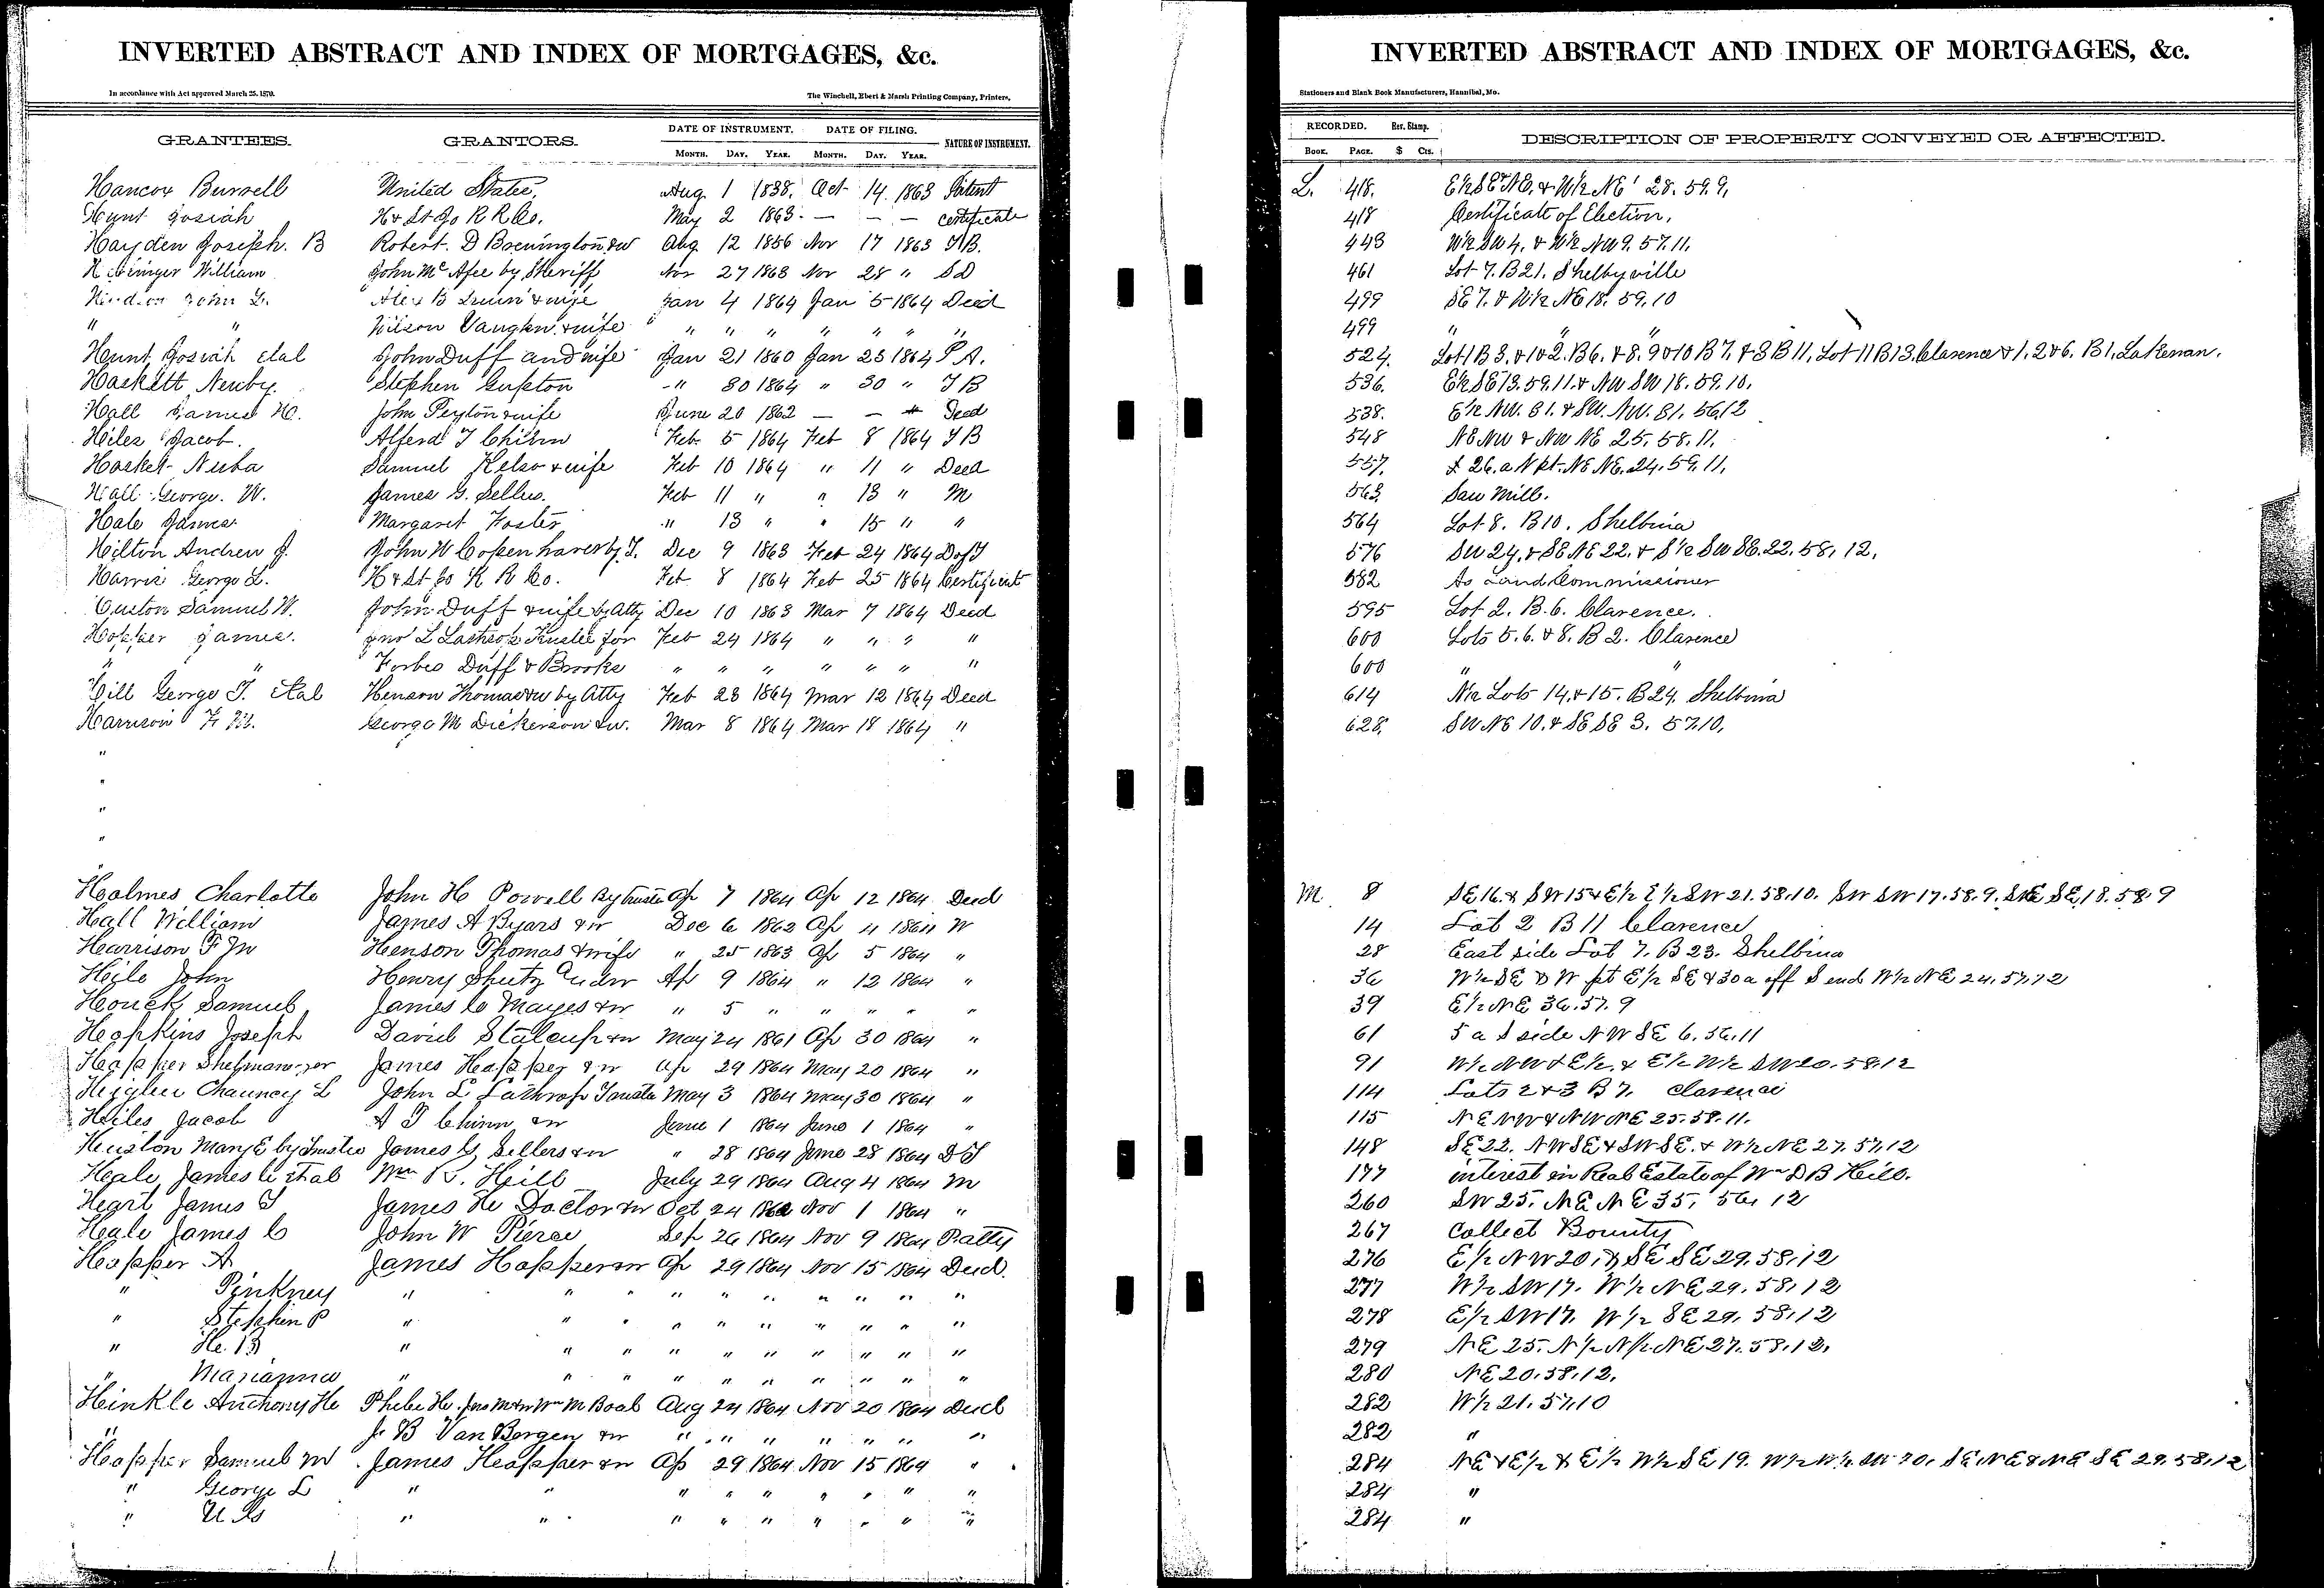 INVERTED ABSTRACT AND INDEX OF MORTGAGES, &c.
In accordance with Act approved March 25, 1870.
The Winchell, Ebert & Marsh Printing Company, Printers,
GRANTEES. GRANTORS. DATE OF INSTRUMENT. DATE OF FILING. NATURE OF INSTRUMENT.
MONTH. DAY. YEAR. MONTH. DAY. YEAR.
Hancox Burwell United States, Aug. 1 1838. Oct 14. 1863 Patent
Hunt Josiah H & St Jo R R Co. May 2 1863. — — — Certificate
Hayden Joseph. B Robert. D Brenington & w Aug 12 1856 Nov 17 1863 T B.
William John McAfee by Sheriff Nov 27 1863 Nov 28 " S D
John L. Alex B & wife Jan 4 1864 Jan 5 1864 Deed
" " Wilson Vaughn & wife " " " " " " "
Hunt Josiah etal John Duff and wife Jan 21 1860 Jan 23 1864 P. A.
Haskett Newby. Stephen Gupton " 30 1864 " 30 " T B
Hall James H. John Peyton & wife June 20 1862 — — " Deed
Hiles Jacob. Alferd T Chinn Feb 5 1864 Feb 8 1864 T B
Hasket Nuba Samuel Kelso & wife Feb 10 1864 " 11 " Deed
Hall George. W. James G. Sellers. Feb 11 " " 13 " M
Hale James Margaret Foster " 13 " " 15 " "
Hilton Andrew J. John W Copenhaver by T. Dec 9 1863 Feb 24 1864 D of T
Harris George L. H & St Jo R R Co. Feb 8 1864 Feb 25 1864 Certificate
Huston Samuel W. John Duff & wife by Atty Dec 10 1863 Mar 7 1864 Deed
Hopper James. Jno L Lathrop Trustee for Feb 24 1864 " " " "
" " Forbes Duff & Brooks " " " " " " "
Hill George T. etal Henson Thomas & w by Atty Feb 23 1864 Mar 12 1864 Deed
Harrison F. M. George M Dickerson & w. Mar 8 1864 Mar 18 1864 "
"
"
"
"
"
Holmes Charlotte John H Powell By trustee Ap 7 1864 Ap 12 1864 Deed
Hall William James A Byars & w Dec 6 1862 Ap 11 1864 W
Harrison F M Henson Thomas & wife " 25 1863 Ap 5 1864 "
Hile John Henry Shutz & w Ap 9 1864 " 12 1864 "
Houck Samuel James C Mayes & w " 5 " " " " "
Hopkins Joseph David Stalcup & w May 24 1861 Ap 30 1864 "
Hopper James Hopper & w Ap 29 1864 May 20 1864 "
Higlee Chauncy L John L Lathrop Trustee May 3 1864 May 30 1864 "
Hiles Jacob A T Chinn & w June 1 1864 June 1 1864 "
Huston Mary E by Trustee James G Sellers & w " 28 1864 June 28 1864 D T
Hale James C etal Wm R. Hill July 29 1864 Aug 4 1864 M
Hart James T James H Doctor & w Oct 24 1862 Nov 1 1864 "
Hale James C John W Pierce Sep 26 1864 Nov 9 1864 P atty
Hopper A James Hopper & w Ap 29 1864 Nov 15 1864 Deed.
" Pinkney " " " " " " " " " "
" Stephin P " " " " " " " " " "
" H. B " " " " " " " " " "
" Marianna " " " " " " " " " "
Hinkle Anthony H Phebe H. Jno M & w Wm M Boal Aug 24 1864 Nov 20 1864 Deed
" J. B Van Bergen & w " " " " " " "
Hopper Samuel M James Hopper & w Ap 29 1864 Nov 15 1864 "
" George L " " " " " " " " "
" " " " " " " " " "
INVERTED ABSTRACT AND INDEX OF MORTGAGES, &c.
Stationers and Blank Book Manufacturers, Hannibal, Mo.
RECORDED. Rev. Stamp. DESCRIPTION OF PROPERTY CONVEYED OR AFFECTED.
BOOK. PAGE. $ CTS.
L. 418. E½ SE NE. & W½ NE 28. 59. 9.
418 Certificate of Election.
443 W½ SW 4. & W½ NW 9. 57. 11.
461 Lot 7. B 21. Shelbyville
499 SE 7. & W½ NE 18. 59. 10
499 " " "
524. Lot 1 B 3. & 1 & 2. B6. & 8. 9 & 10 B 7. & 3 B 11. Lot 11 B 13. Clarence & 1. 2 & 6. B 1. Lakenan.
536. E½ SE 13. 59. 11. & NW SW 18. 59. 10.
538. E½ NW. 31. & SW. NW. 31. 56. 12
548 NE NW & NW NE 25. 58. 11.
557. & 26. a N pt. NE NE. 24. 59. 11.
563. Saw Mill.
564 Lot 8. B 10. Shelbina
576 SW 24. & SE NE 22. & S½ SW SE. 22. 58. 12.
582 As Land Commissioner
595 Lot 2. B. 6. Clarence.
600 Lots 5. 6. & 8. B 2. Clarence
600 " "
614 N½ Lots 14. & 15. B 24. Shelbina
628. SW NE 10. & SE SE 3. 57. 10.
M. 8 SE 16. & SW 15 & E½ E½ SW 21. 58. 10. SW SW 17. 58. 9. SE SE. 18. 58. 9
14 Lot 2 B 11 Clarence
28 East side Lot 7. B 23. Shelbina
36 W½ SE & W pt E½ SE & 30 a off S end W½ NE 24. 57. 12
39 E½ NE 36. 57. 9
61 5 a S side NW SE 6. 56. 11
91 W½ NW & E½. & E½ W½ SW 20. 58. 12
114 Lots 2 & 3 B 7. Clarence
115 NE NW & NW NE 25. 58. 11.
148 SE 22. NW SE & SW SE. & W½ NE 27. 57. 12
177 interest in Real Estate of Wm D B Hill.
260 SW 25. NE NE 35. 56. 12
267 Collect Bounty
276 E½ NW 20. & SE SE 29. 58. 12
277 W½ SW 17. W½ NE 29. 58. 12
278 E½ SW 17. W½ SE 29. 58. 12
279 NE 25. N½ N½ NE 27. 58. 12.
280 NE 20. 58. 12.
282 W½ 21. 57. 10
282 "
284 NE & E½ & E½ W½ SE 19. W½ W½ SW 20. SE NE & NE SE 29. 58. 12
284 "
284 "